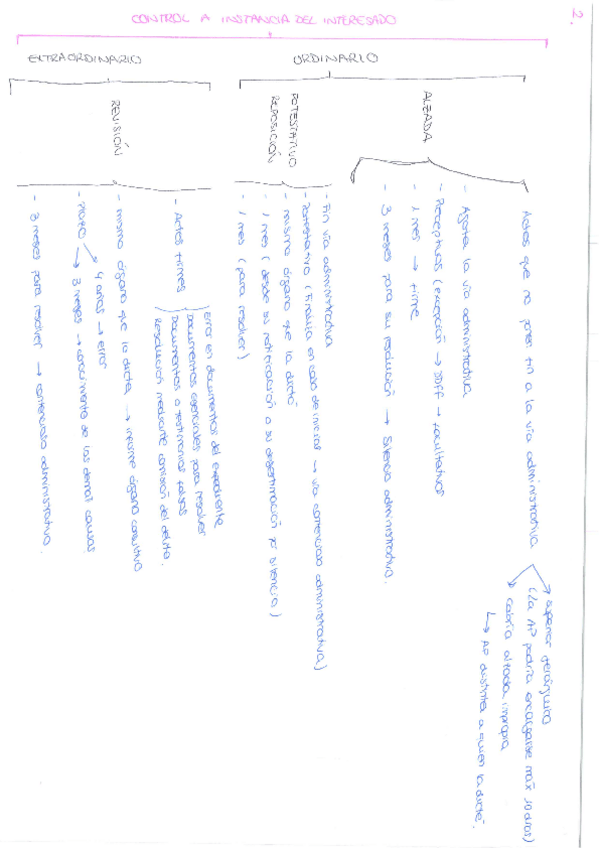 2.
CONTROL A INSTANCIA DEL INTERESADO
ORDINARIO
ALZADA
Actos que no ponen fin a la vía administrativa
→ superior jerárquico
(La Aº podría encargarse máx 10 días)
→ cabría alzada impropia
↳ Aº distinta a quien la dicte.
- Agota la vía administrativa
- Preceptivas (excepción → DDFF → facultativos
- 1 mes → firme
- 3 meses para su resolución → Silencio administrativo.
POTESTATIVO
REPOSICIÓN
- Fin vía administrativa
- Potestativo (Finaliza en caso de iniciar → vía contencioso administrativa)
- mismo órgano que la dictó
- 1 mes (desde su notificación o su desestimación por silencio)
- 1 mes (para resolver)
EXTRAORDINARIO
REVISIÓN
- Actos firmes
Error en documentos del expediente
Documentos esenciales para resolver
Documentos o testimonios falsos
Resolución mediante comisión del delito.
- mismo órgano que lo dicta → informe órgano consultivo
- Plazo
→ 4 años → error
→ 3 meses → conocimiento de las demás causas
- 3 meses para resolver → contencioso administrativo.